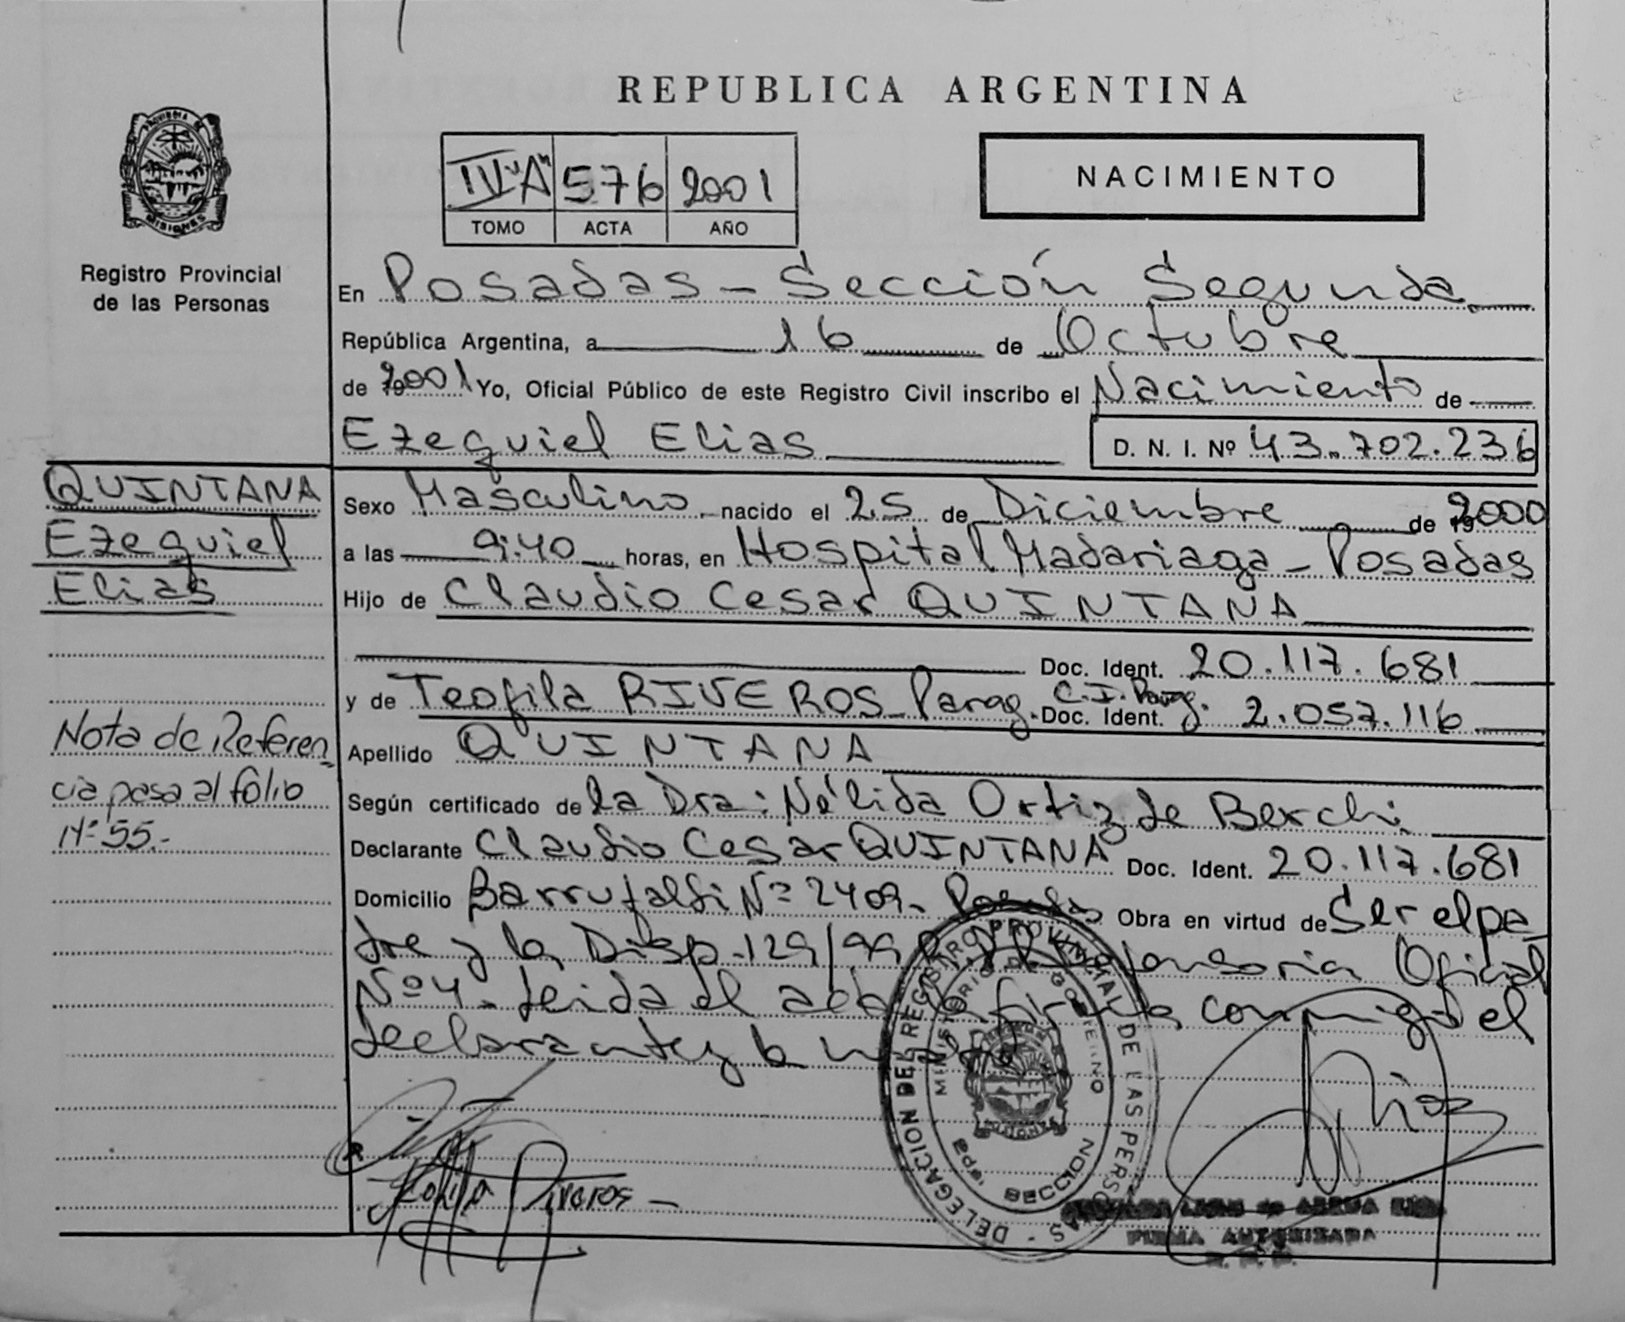 REPUBLICA ARGENTINA
PROVINCIA DE
MISIONES
Registro Provincial
de las Personas
IV"A" 576 2001
TOMO ACTA AÑO
NACIMIENTO
En Posadas - Sección Segunda
República Argentina, a 16 de Octubre
de 2001 Yo, Oficial Público de este Registro Civil inscribo el Nacimiento de
Ezequiel Elias D. N. I. Nº 43.702.236
QUINTANA
Ezequiel
Elias
Sexo Masculino nacido el 25 de Diciembre de 2000
a las 9:40 horas, en Hospital Madariaga - Posadas
Hijo de Claudio Cesar QUINTANA
Doc. Ident. 20.117.681
y de Teofila RIVEROS - Parag. C.I. Parag. Doc. Ident. 2.057.116
Nota de Referen
cia pasa al folio
Nº 55.-
Apellido QUINTANA
Según certificado de la Dra: Nélida Ortiz de Berchi
Declarante Claudio Cesar QUINTANA Doc. Ident. 20.117.681
Domicilio Barrufaldi Nº 2409 - Posadas Obra en virtud de Ser el pa
dre y la Disp. 129/99 Defensoria Oficial
Nº 4. Leida el acta firma conmigo el
declarante y la
DELEGACION DEL REGISTRO PROVINCIAL DE LAS PERSONAS
MINISTERIO DE GOBIERNO
2da. SECCION
Riveros
FIRMA AUTORIZADA